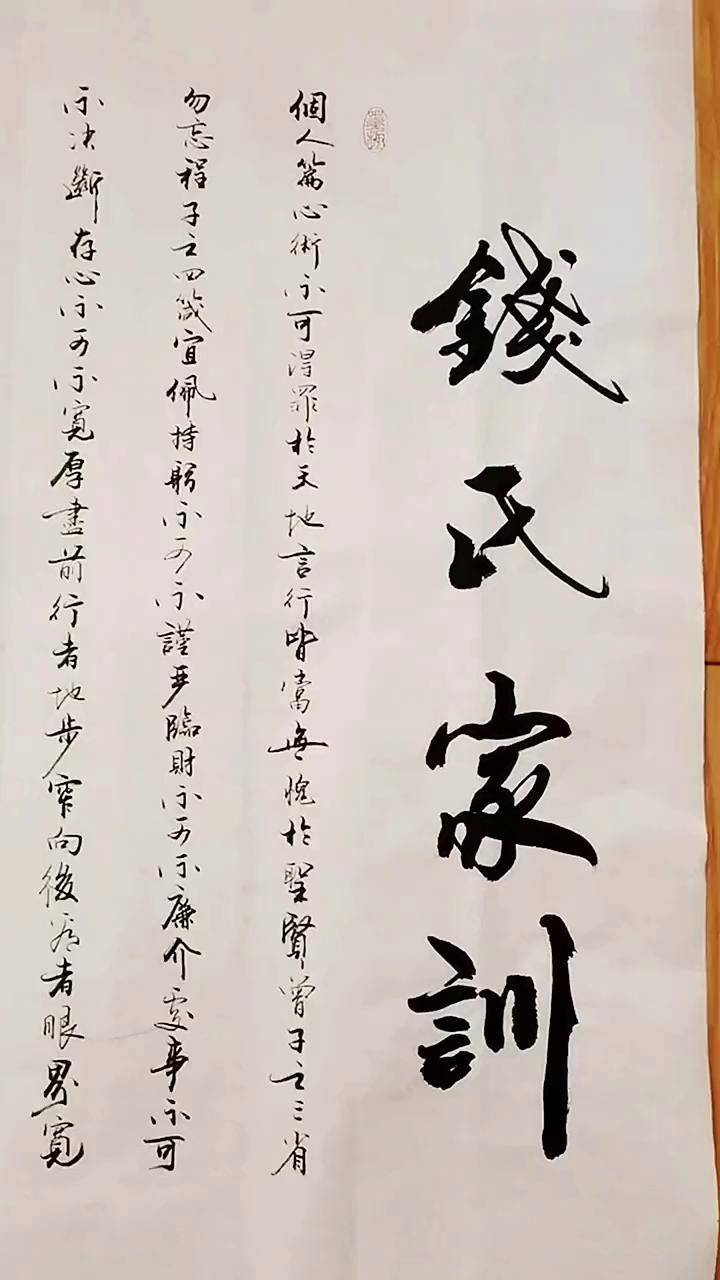 錢氏家訓
個人篇心術不可得罪於天地言行皆當無愧於聖賢曾子之三省
勿忘程子之四箴宜佩持躬不可不謹嚴臨財不可不廉介處事不可
不决斷存心不可不寬厚盡前行者地步窄向後看者眼界寬